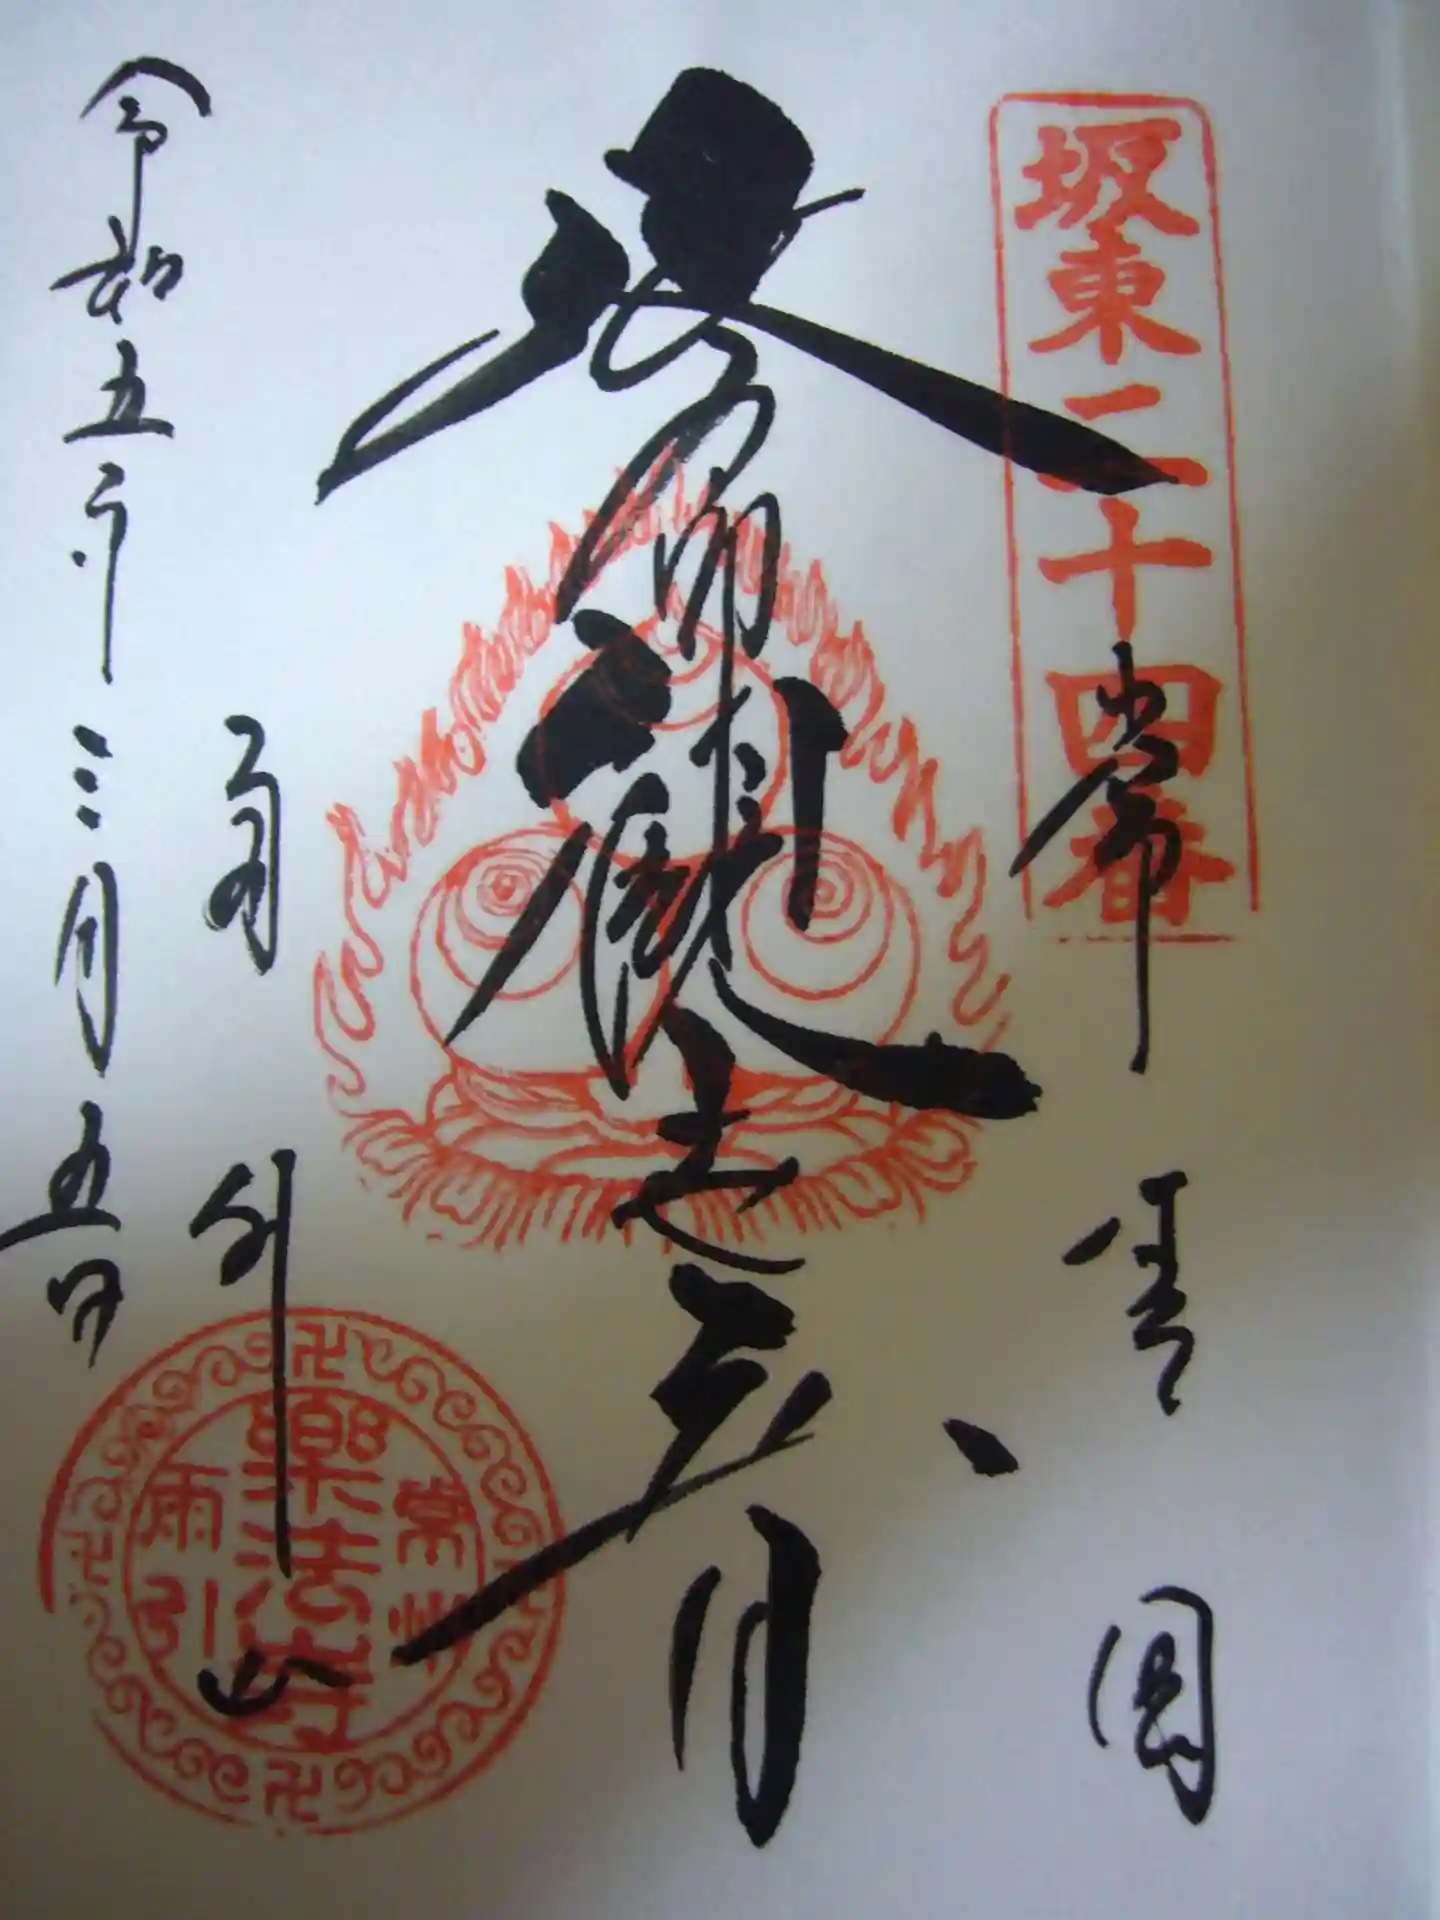 坂東二十四番
常陸国
延命観世音
雨引山
令和五年三月五日
常州
樂法寺
雨引